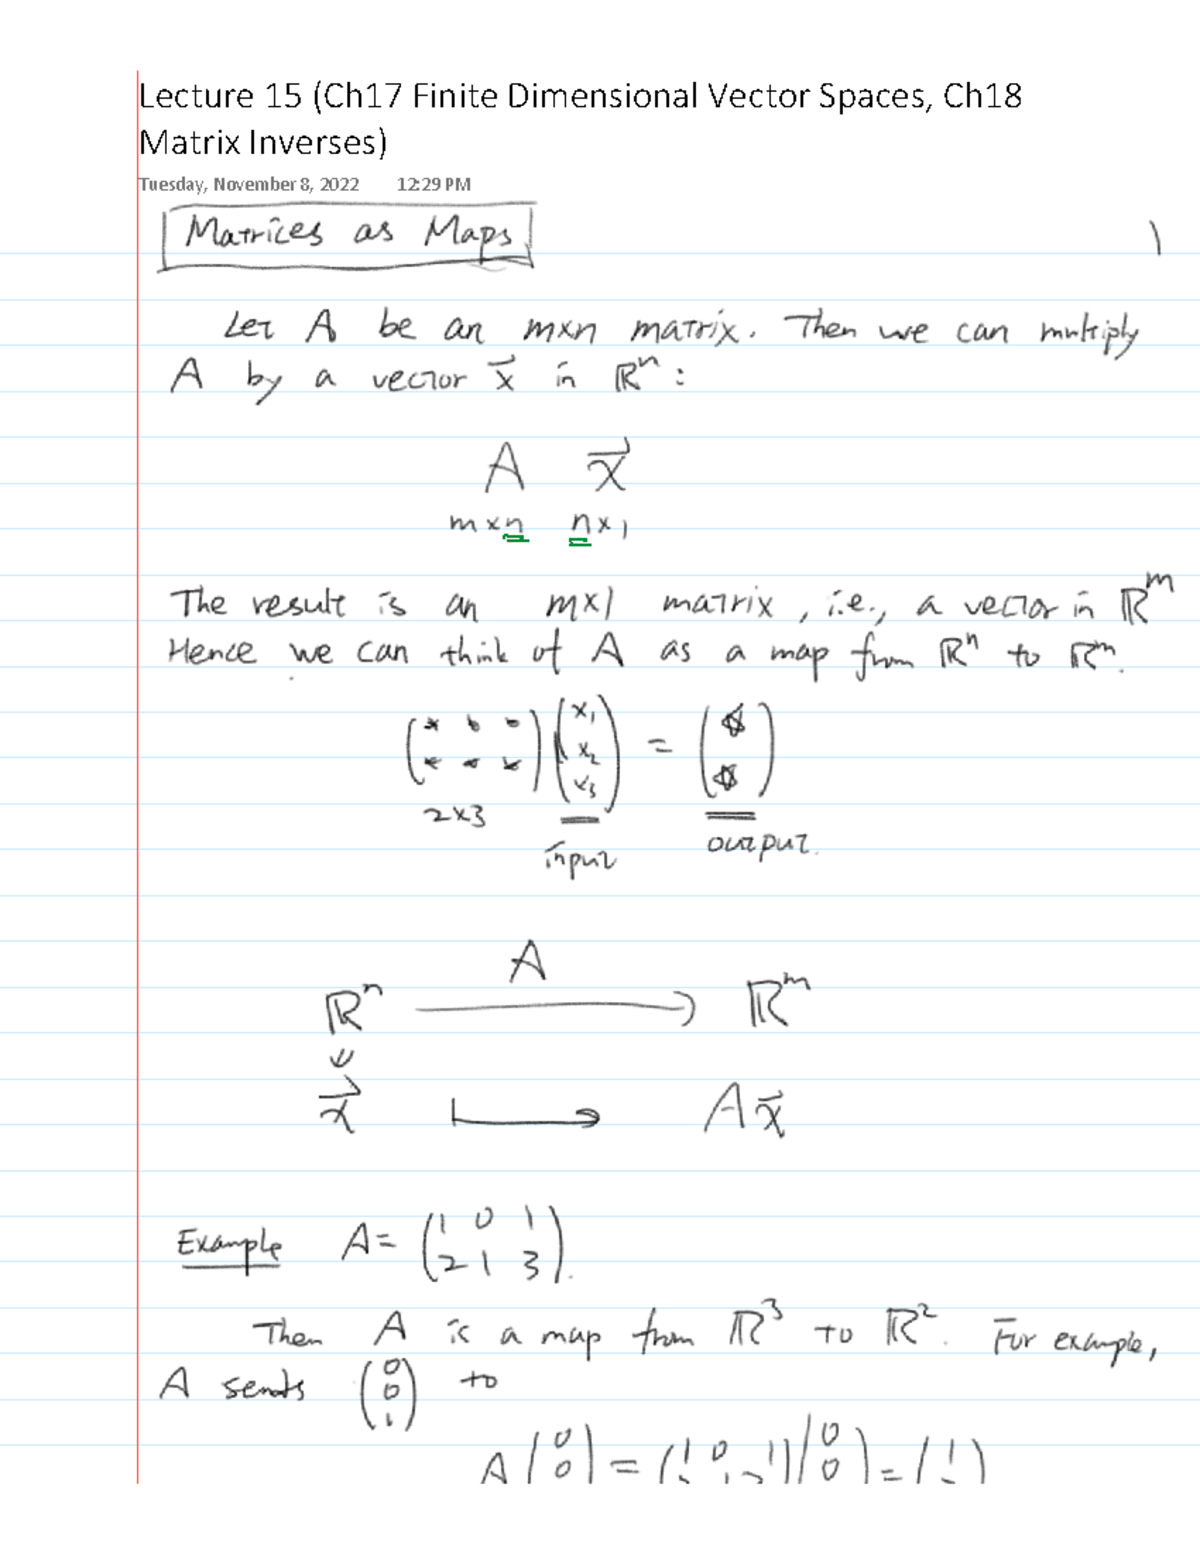 Lecture 15 (Ch17 Finite Dimensional Vector Spaces, Ch18
Matrix Inverses)
Tuesday, November 8, 2022 12:29 PM
Matrices as Maps
1
Let A be an m×n matrix. Then we can multiply
A by a vector x⃗ in ℝⁿ:
A x⃗
m×n n×1
The result is an m×1 matrix, i.e., a vector in ℝᵐ
Hence we can think of A as a map from ℝⁿ to ℝᵐ.
(* * * / * * *) (x₁ / x₂ / x₃) = (☆ / ☆)
2×3
input output.
A
ℝⁿ ⟶ ℝᵐ
∈
x⃗ ⟼ Ax⃗
Example A = (1 0 1 / 2 1 3).
Then A is a map from ℝ³ to ℝ². For example,
A sends (0 / 0 / 1) to
A (0 / 0) = (1 0 1) (0 / 0) = (1)